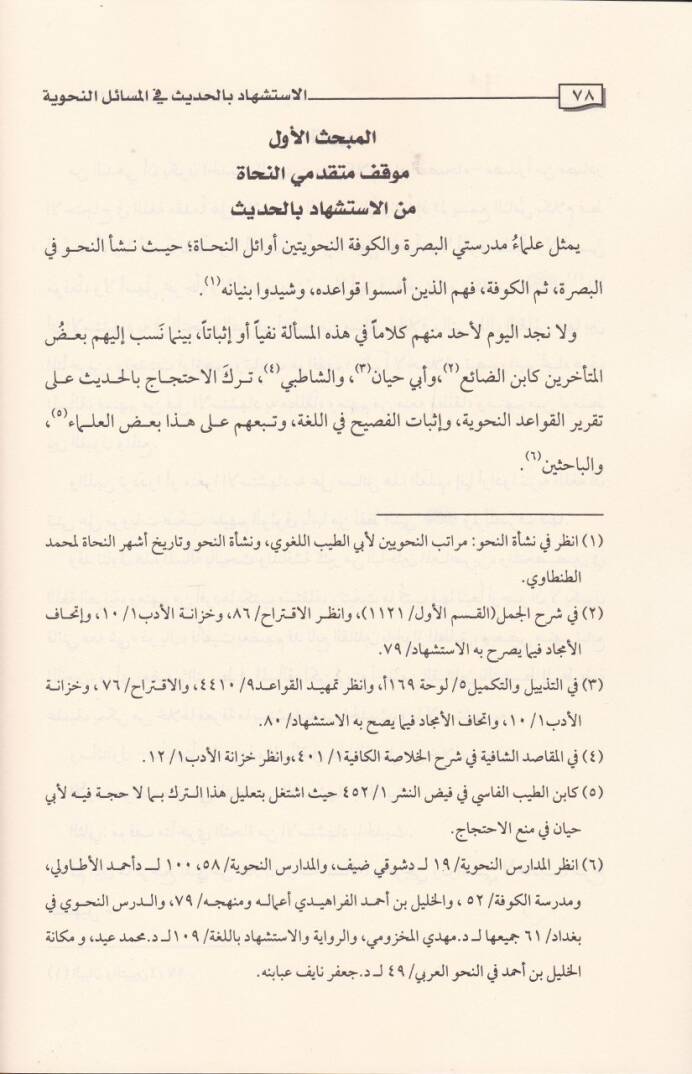 ٧٨ الاستشهاد بالحديث في المسائل النحوية
المبحث الأول
موقف متقدمي النحاة
من الاستشهاد بالحديث
يمثل علماءُ مدرستي البصرة والكوفة النحويتين أوائل النحاة؛ حيث نشأ النحو في
البصرة، ثم الكوفة، فهم الذين أسسوا قواعده، وشيدوا بنيانه(١).
ولا نجد اليوم لأحد منهم كلاماً في هذه المسألة نفياً أو إثباتاً، بينما نَسب إليهم بعضُ
المتأخرين كابن الضائع(٢)،وأبي حيان(٣)، والشاطبي(٤)، تركَ الاحتجاج بالحديث على
تقرير القواعد النحوية، وإثبات الفصيح في اللغة، وتبعهم على هذا بعض العلماء(٥)،
والباحثين(٦).
(١) انظر في نشأة النحو: مراتب النحويين لأبي الطيب اللغوي، ونشأة النحو وتاريخ أشهر النحاة لمحمد
الطنطاوي.
(٢) في شرح الجمل(القسم الأول/ ١١٢١)، وانظر الاقتراح/ ٨٦، وخزانة الأدب١/ ١٠، وإتحاف
الأمجاد فيما يصرح به الاستشهاد/ ٧٩.
(٣) في التذييل والتكميل٥/ لوحة ١٦٩أ، وانظر تمهيد القواعد٩/ ٤٤١٠، والاقتراح/ ٧٦، وخزانة
الأدب١/ ١٠، واتحاف الأمجاد فيما يصح به الاستشهاد/ ٨٠.
(٤) في المقاصد الشافية في شرح الخلاصة الكافية١/ ٤٠١،وانظر خزانة الأدب١/ ١٢.
(٥) كابن الطيب الفاسي في فيض النشر ١/ ٤٥٢ حيث اشتغل بتعليل هذا الترك بما لا حجة فيه لأبي
حيان في منع الاحتجاج.
(٦) انظر المدارس النحوية/ ١٩ لـ دشوقي ضيف، والمدارس النحوية/ ٥٨، ١٠٠ لـ دأحمد الأطاولي،
ومدرسة الكوفة/ ٥٢ ، والخليل بن أحمد الفراهيدي أعماله ومنهجه/ ٧٩، والدرس النحوي في
بغداد/ ٦١ جميعها لـ د.مهدي المخزومي، والرواية والاستشهاد باللغة/ ١٠٩ لـ د.محمد عيد، و مكانة
الخليل بن أحمد في النحو العربي/ ٤٩ لـ د.جعفر نايف عبابنه.